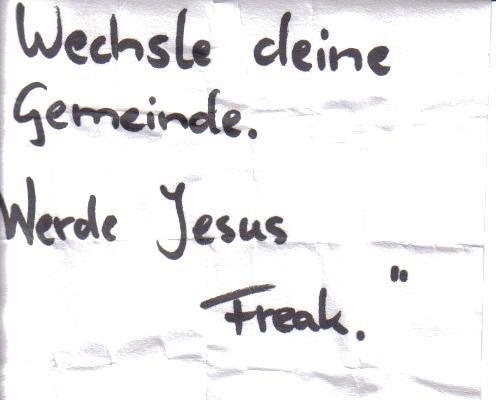 Wechsle deine
Gemeinde.
Werde Jesus
Freak."